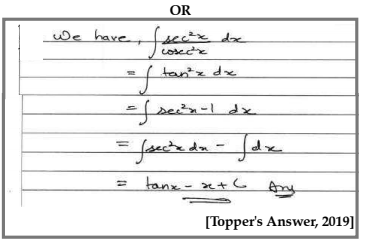 OR
We have, ∫ sec²x / cosec²x dx
= ∫ tan²x dx
= ∫ sec²x-1 dx
= ∫ sec²x dx - ∫ dx
= tanx - x + C Ans
[Topper's Answer, 2019]